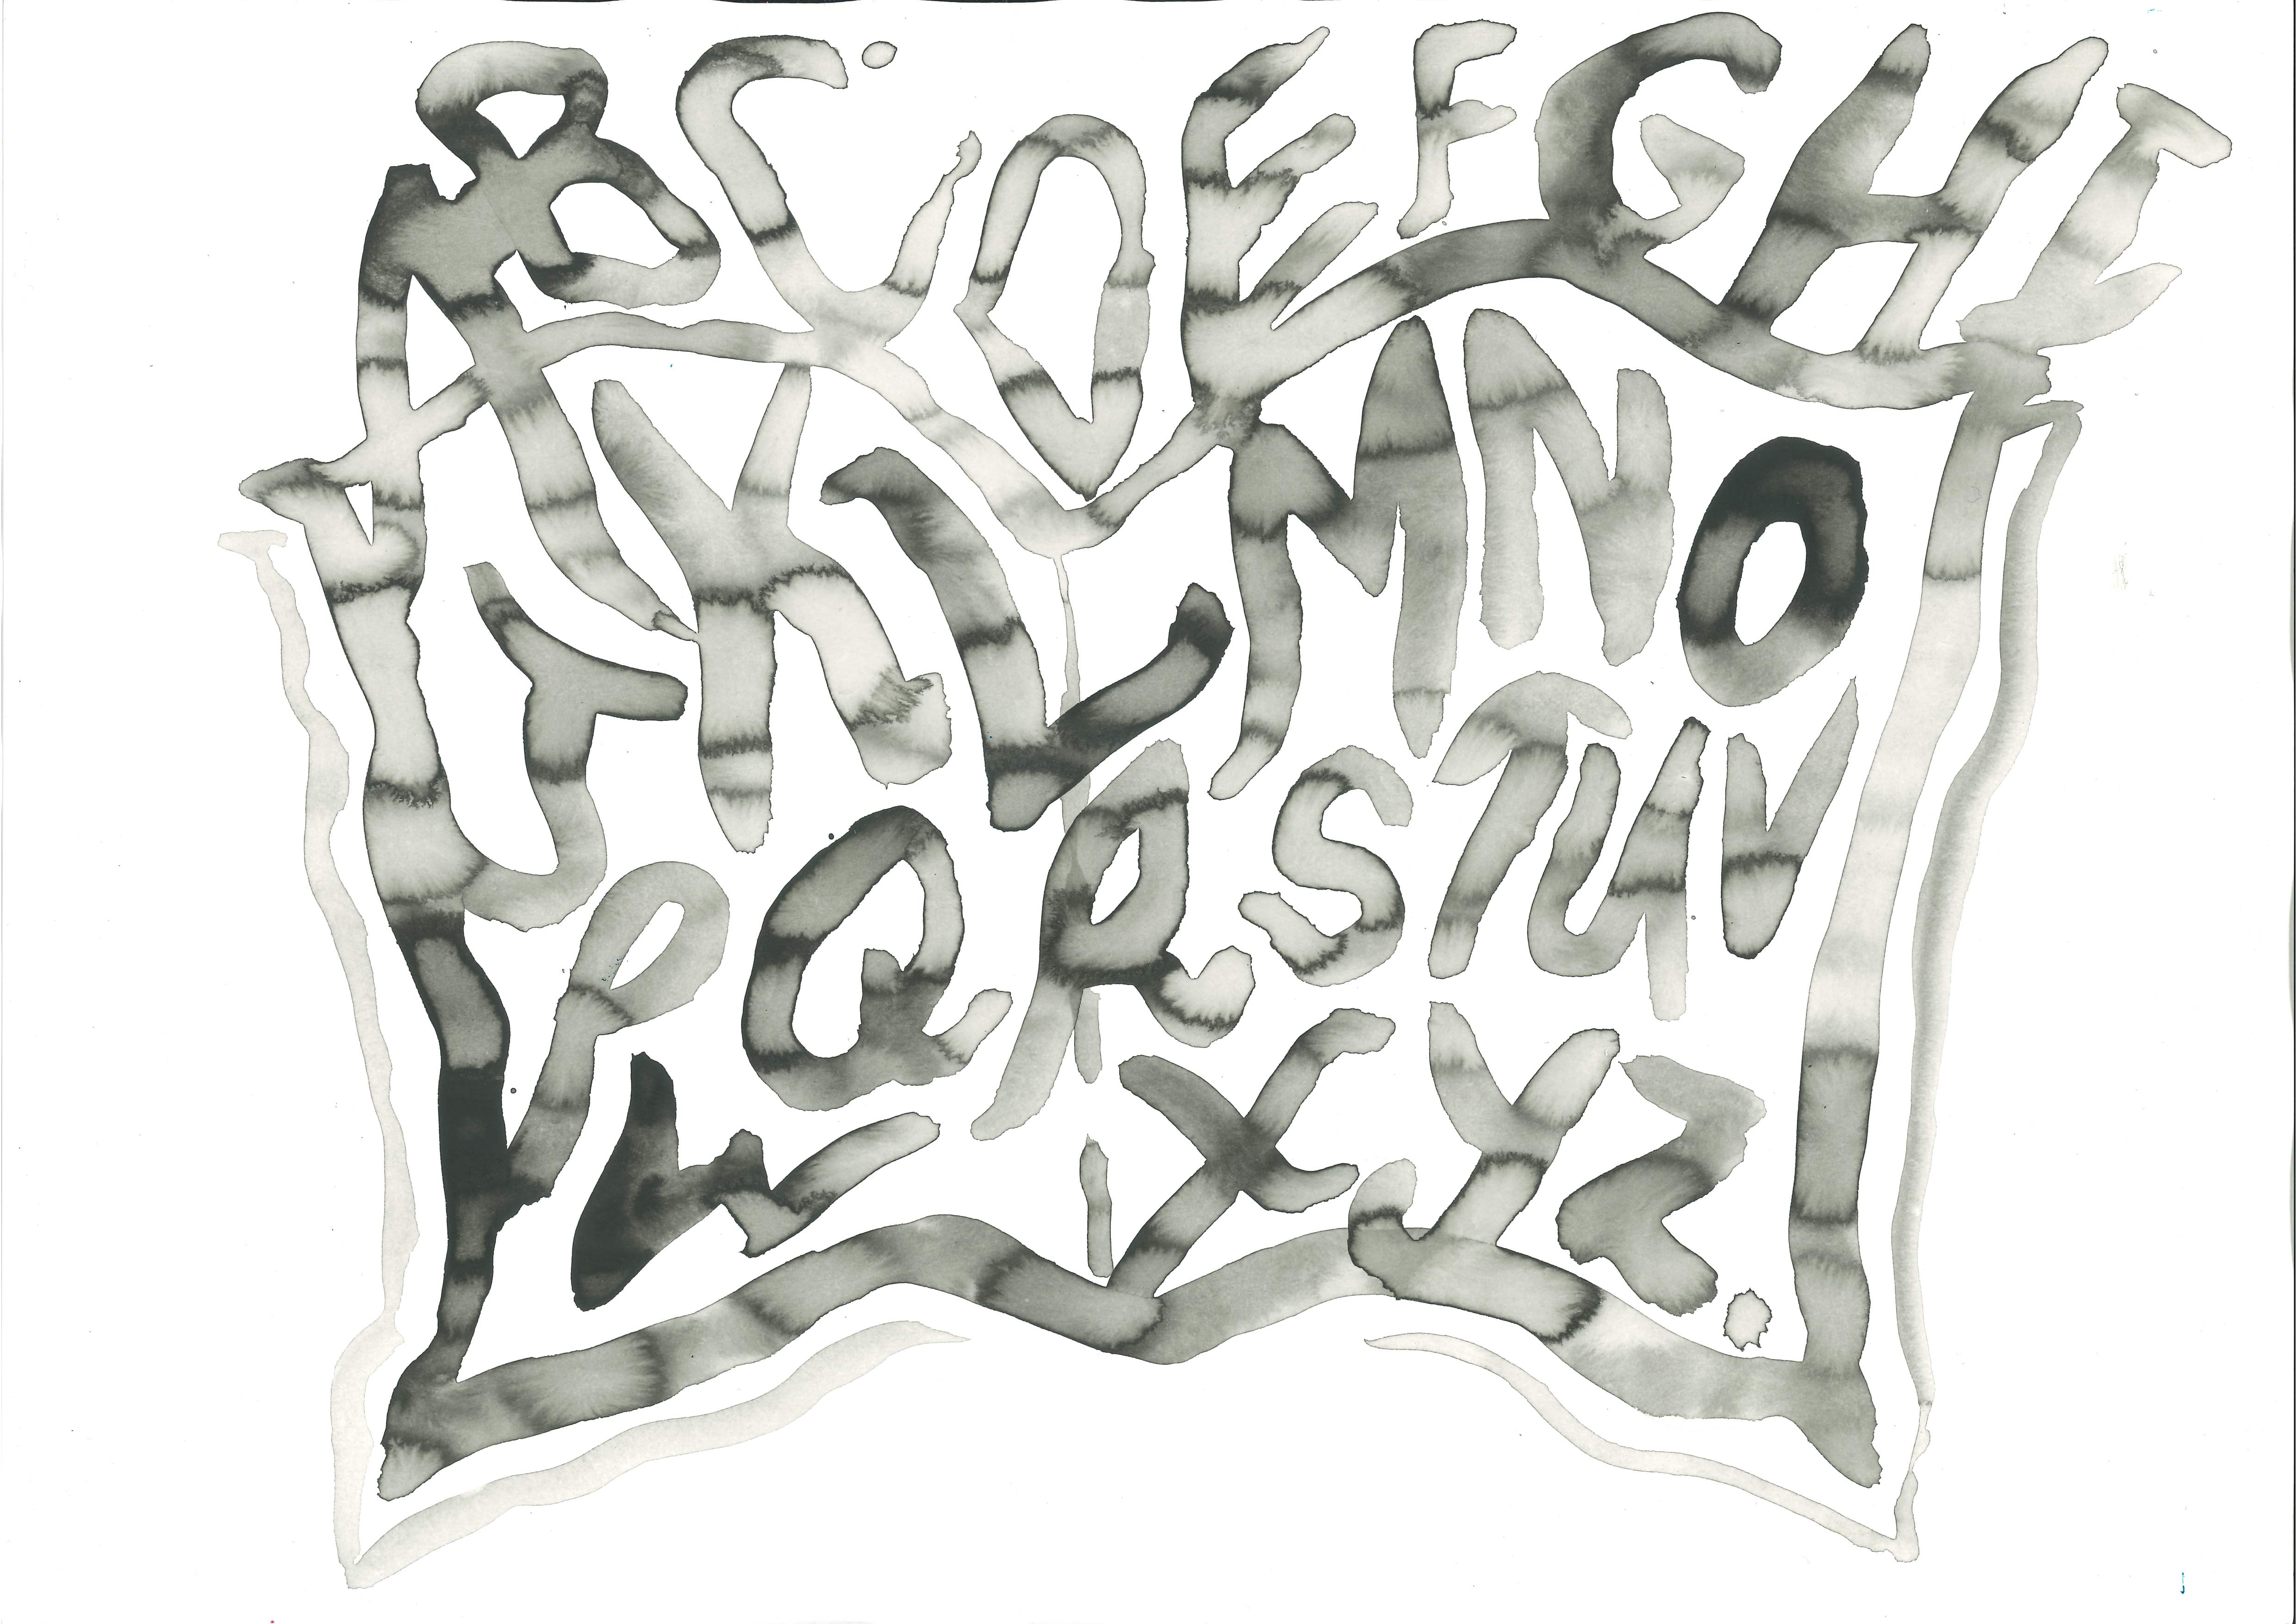 ABCDEFGHI
JKLMNO
PQRSTUV
WXYZ.